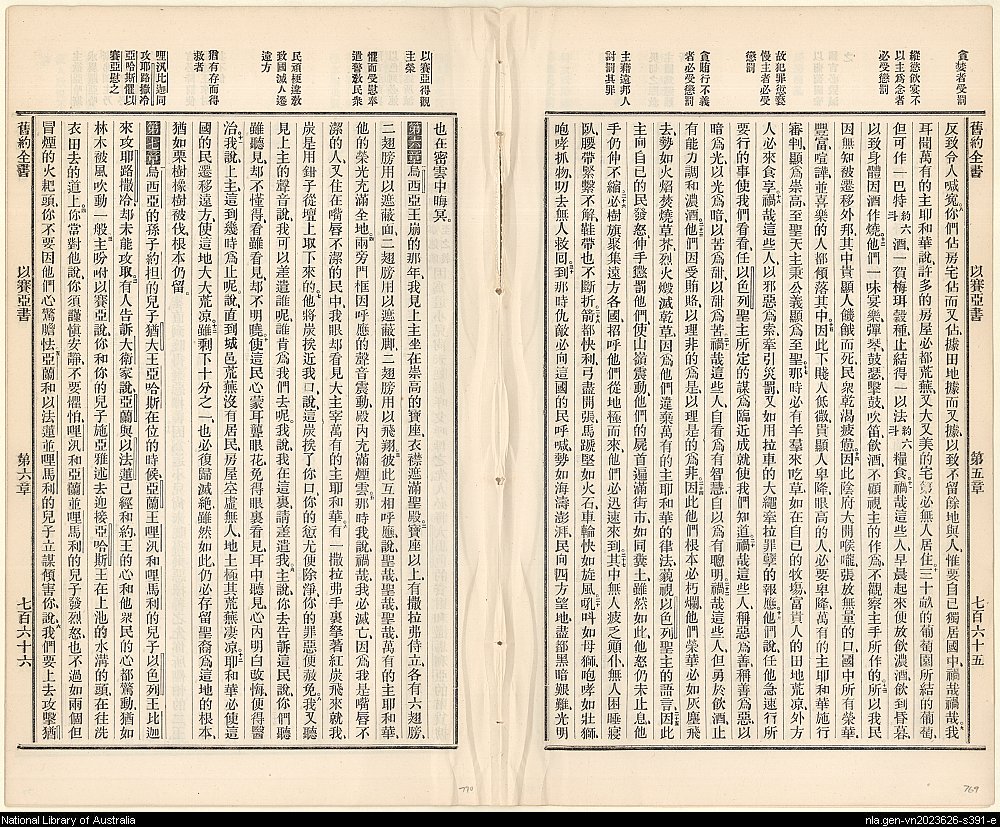 貪婪者受罰
縱慾飲宴不
以主為念者
必受懲罰
故犯罪愆褻
慢主者必受
懲罰
貪賄行不義
者必受懲罰
主藉遠邦人
討罰其罪
舊約全書 以賽亞書 第五章 七百六十五
反致令人喊冤你們佔房宅佔而又佔據田地據而又據以致不留餘地與人惟要自己獨居國中禍哉禍哉我
耳聞萬有的主耶和華說許多的房屋必都荒蕪又大又美的宅第必無人居住三十畝的葡萄園所結的葡萄
但可作一巴特約六斗酒一賀梅珥穀種止結得一以法約六斗糧食禍哉這些人早晨起來便放飲濃酒飲到昏暮
以致身體因酒作燒他們一味宴樂彈琴鼓瑟擊鼓吹笛飲酒不顧視主的作為不觀察主手所作的所以我民
因無知被遷移外邦其中貴顯人饑餓而死民眾乾渴疲憊因此陰府大開喉嚨張放無量的口國中所有榮華
豐富喧譁並喜樂的人都傾落其中因此下賤人低微貴顯人卑降眼高的人必要卑降萬有的主耶和華施行
審判顯為崇高至聖天主秉公義顯為至聖那時必有羊羣來吃草如在自已的牧場富貴人的田地荒凉外方
人必來食享禍哉這些人以邪惡為索牽引災罰又如用拉車的大繩牽拉罪孽的報應他們說任他急速行所
要行的事使我們看看任以色列聖主所定的謀為臨近成就使我們知道禍哉這些人稱惡為善稱善為惡以
暗為光以光為暗以苦為甜以甜為苦禍哉這些人自看為有智慧自以為有聰明禍哉這些人但勇於飲酒止
有能力調和濃酒他們因受賄賂以理非的為是以理是的為非因此他們根本必朽爛他們榮華必如灰塵飛
去勢如火焰焚燒草芥烈火燬滅乾草因為他們違棄萬有的主耶和華的律法藐視以色列聖主的語言因此
主向自已的民發怒伸手懲罰他們使山嶺震動他們的屍首遍滿街市如同糞土雖然如此他怒仍未止息他
手仍伸不縮必樹旗聚集遠方各國招呼他們從地極而來他們必迅速來到其中無人疲乏顛仆無人困睡寢
臥腰帶緊繫不解鞋帶也不斷折箭都快利弓盡開張馬蹄堅如火石車輪快如旋風吼叫如母獅咆哮如壯獅
咆哮抓物叨去無人救回到那時仇敵必向這國的民呼喊勢如海濤澎湃民向四方望地盡都黑暗艱難光明
以賽亞得觀
主榮
懼而受慰奉
遣警教民衆
民頑梗違敎
致國滅人遷
遠方
猶有存而得
救者
哩汛比迦同
攻耶路撒冷
亞哈斯懼以
賽亞慰之
舊約全書 以賽亞書 第六章 七百六十六
也在密雲中晦冥
第六章烏西亞王崩的那年我見上主坐在崇高的寶座衣襟遮滿聖殿寶座以上有撒拉弗侍立各有六翅膀
二翅膀用以遮蔽面二翅膀用以遮蔽脚二翅膀用以飛翔彼此互相呼應說聖哉聖哉聖哉萬有的主耶和華
他的榮光充滿全地兩旁門框因呼應的聲音震動殿內充滿煙雲那時我說禍哉我必滅亡因為我是嘴唇不
潔的人又住在嘴唇不潔的民中我眼却看見大主宰萬有的主耶和華有一撒拉弗手裏拏著紅炭飛來就我
炭是用鉗子從壇上取下來的他將炭挨近我口說這炭挨了你口你的愆尤便除淨你的罪惡便赦免我又聽
見上主的聲音說我可以差遣誰呢誰肯為我們去呢我說我在這裏請差遣我主說你去告訴這民說你們聽
雖聽見却不懂得看雖看見却不明曉使這民心蒙耳聾眼花免得眼裏看見耳中聽見心內明白改悔便得醫
治我說上主這到幾時為止呢說直到城邑荒蕪沒有居民房屋空虛無人地土極其荒蕪凄凉耶和華必使這
國的民遷移遠方使這地大大荒凉雖剩下十分之一也必復歸滅絕雖然如此仍必存留聖裔為這地的根本
猶如栗樹橡樹被伐根本仍留
第七章烏西亞的孫子約担的兒子猶大王亞哈斯在位的時候亞蘭王哩汛和哩馬利的兒子以色列王比迦
來攻耶路撒冷却未能攻取有人告訴大衛家說亞蘭與以法蓮己經和約王的心和他衆民的心都驚動猶如
林木被風吹動一般主吩咐以賽亞說你和你的兒子施亞雅述去迎接亞哈斯王在上池的水溝的頭在往洗
衣田去的道上你當對他說你須謹慎安靜不要懼怕哩汛和亞蘭並哩馬利的兒子發烈怒也不過如兩個但
冒煙的火耙頭你不要因他們心驚膽怯亞蘭和以法蓮並哩馬利的兒子立謀傾害你說我們要上去攻擊猶
770
769
National Library of Australia
nla.gen-vn2023626-s391-e